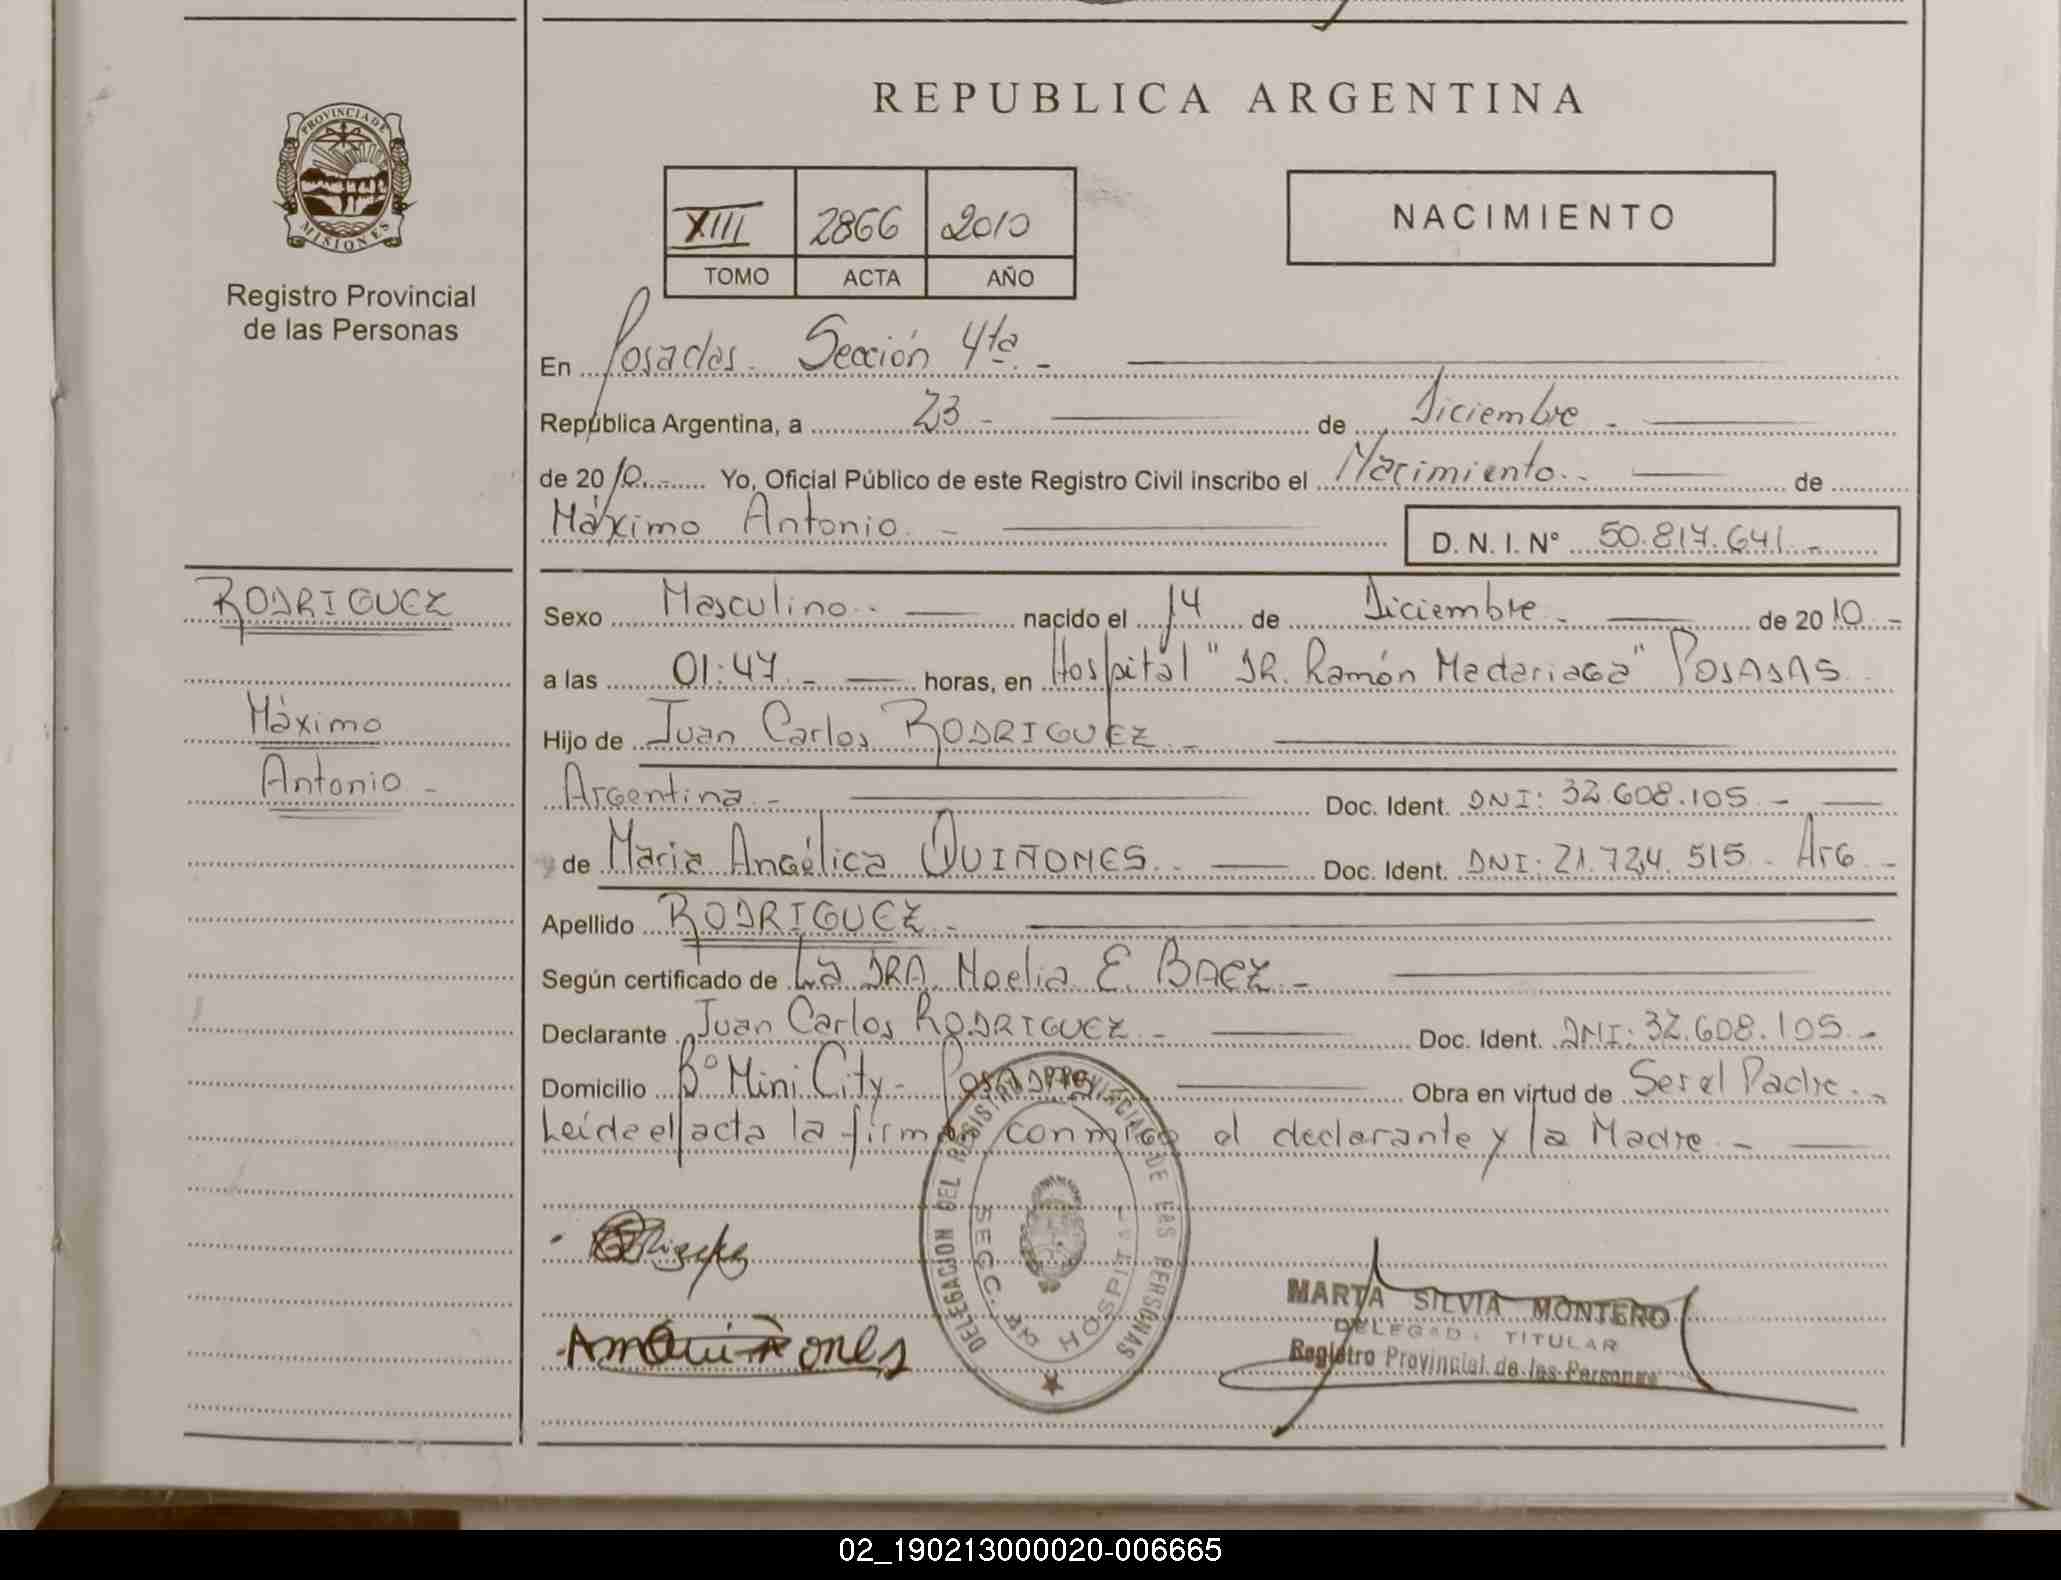 REPUBLICA ARGENTINA
PROVINCIA DE
MISIONES
Registro Provincial
de las Personas
XIII 2866 2010
TOMO ACTA AÑO
NACIMIENTO
En Posadas Sección 4ta. -
República Argentina, a 23 - de Diciembre -
de 2010 Yo, Oficial Público de este Registro Civil inscribo el Nacimiento - de
Máximo Antonio - D. N. I. N° 50.817.641 -
RODRIGUEZ
Máximo
Antonio -
Sexo Masculino - nacido el 14 de Diciembre - de 2010 -
a las 01:47 - horas, en Hospital "DR. Ramón Madariaga" POSADAS
Hijo de Juan Carlos RODRIGUEZ -
Argentina - Doc. Ident. DNI: 32.608.105 -
de Maria Angélica QUIÑONES - Doc. Ident. DNI: 21.724.515 - Arg -
Apellido RODRIGUEZ -
Según certificado de La DRA. Noelia E. BAEZ -
Declarante Juan Carlos RODRIGUEZ - Doc. Ident. DNI: 32.608.105 -
Domicilio B° Mini City - POSADAS Obra en virtud de Ser el Padre -
Leída el acta la firman conmigo el declarante y la Madre -
DELEGACION DEL REGISTRO PROVINCIAL DE LAS PERSONAS
SECC. HOSPITAL
MARTA SILVIA MONTERO
DELEGADA TITULAR
Registro Provincial de las Personas
02_190213000020-006665